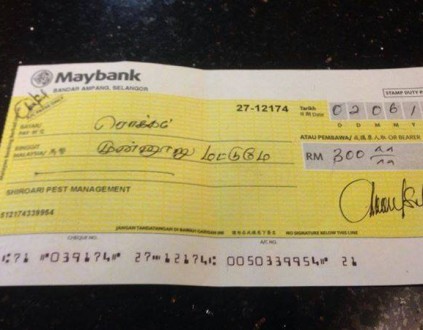 Maybank
BANDAR AMPANG, SELANGOR
STAMP DUTY P
27-12174 Tarikh Date 0 2 0 6 1
D D M M Y
BAYAR/ ரொக்கம் ATAU PEMBAWA/ OR BEARER
RINGGIT MALAYSIA/ முன்னூறு மட்டுமே RM 300
SHIROARI PEST MANAGEMENT
512174339954
JANGAN TANDATANGAN DI BAWAH GARISAN INI NO SIGNATURE BELOW THIS LINE
CHEQUE NO. A/C NO.
71 039174 27 12174 0050339954 21